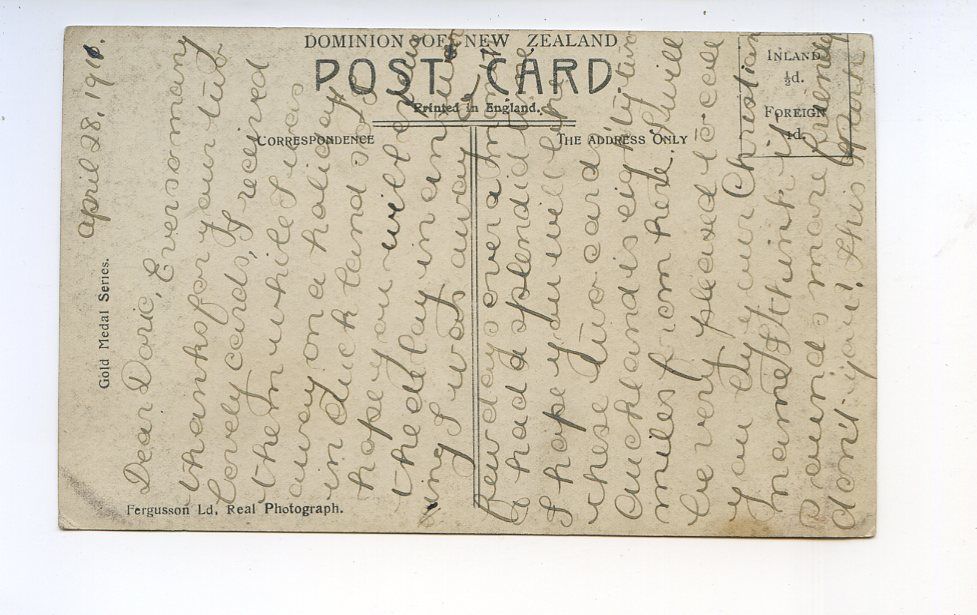 DOMINION OF NEW ZEALAND
POST CARD
Printed in England.
CORRESPONDENCE
THE ADDRESS ONLY
INLAND
½d.
FOREIGN
1d.
Gold Medal Series.
Fergusson Ld. Real Photograph.
April 28, 191
Dear Doric, Ever so many
thanks for your two
lovely cards, I received
them while I was
away on a holiday
in Auckland so I
hope you will excuse
the delay in answer
ing I was away a
few days over a month
& had a splendid time
I hope you will like
these two cards
Auckland is eighty two
miles from here. I will
be very pleased to call
you by your Christian
name I think it
sounds more friendly
don't you? this